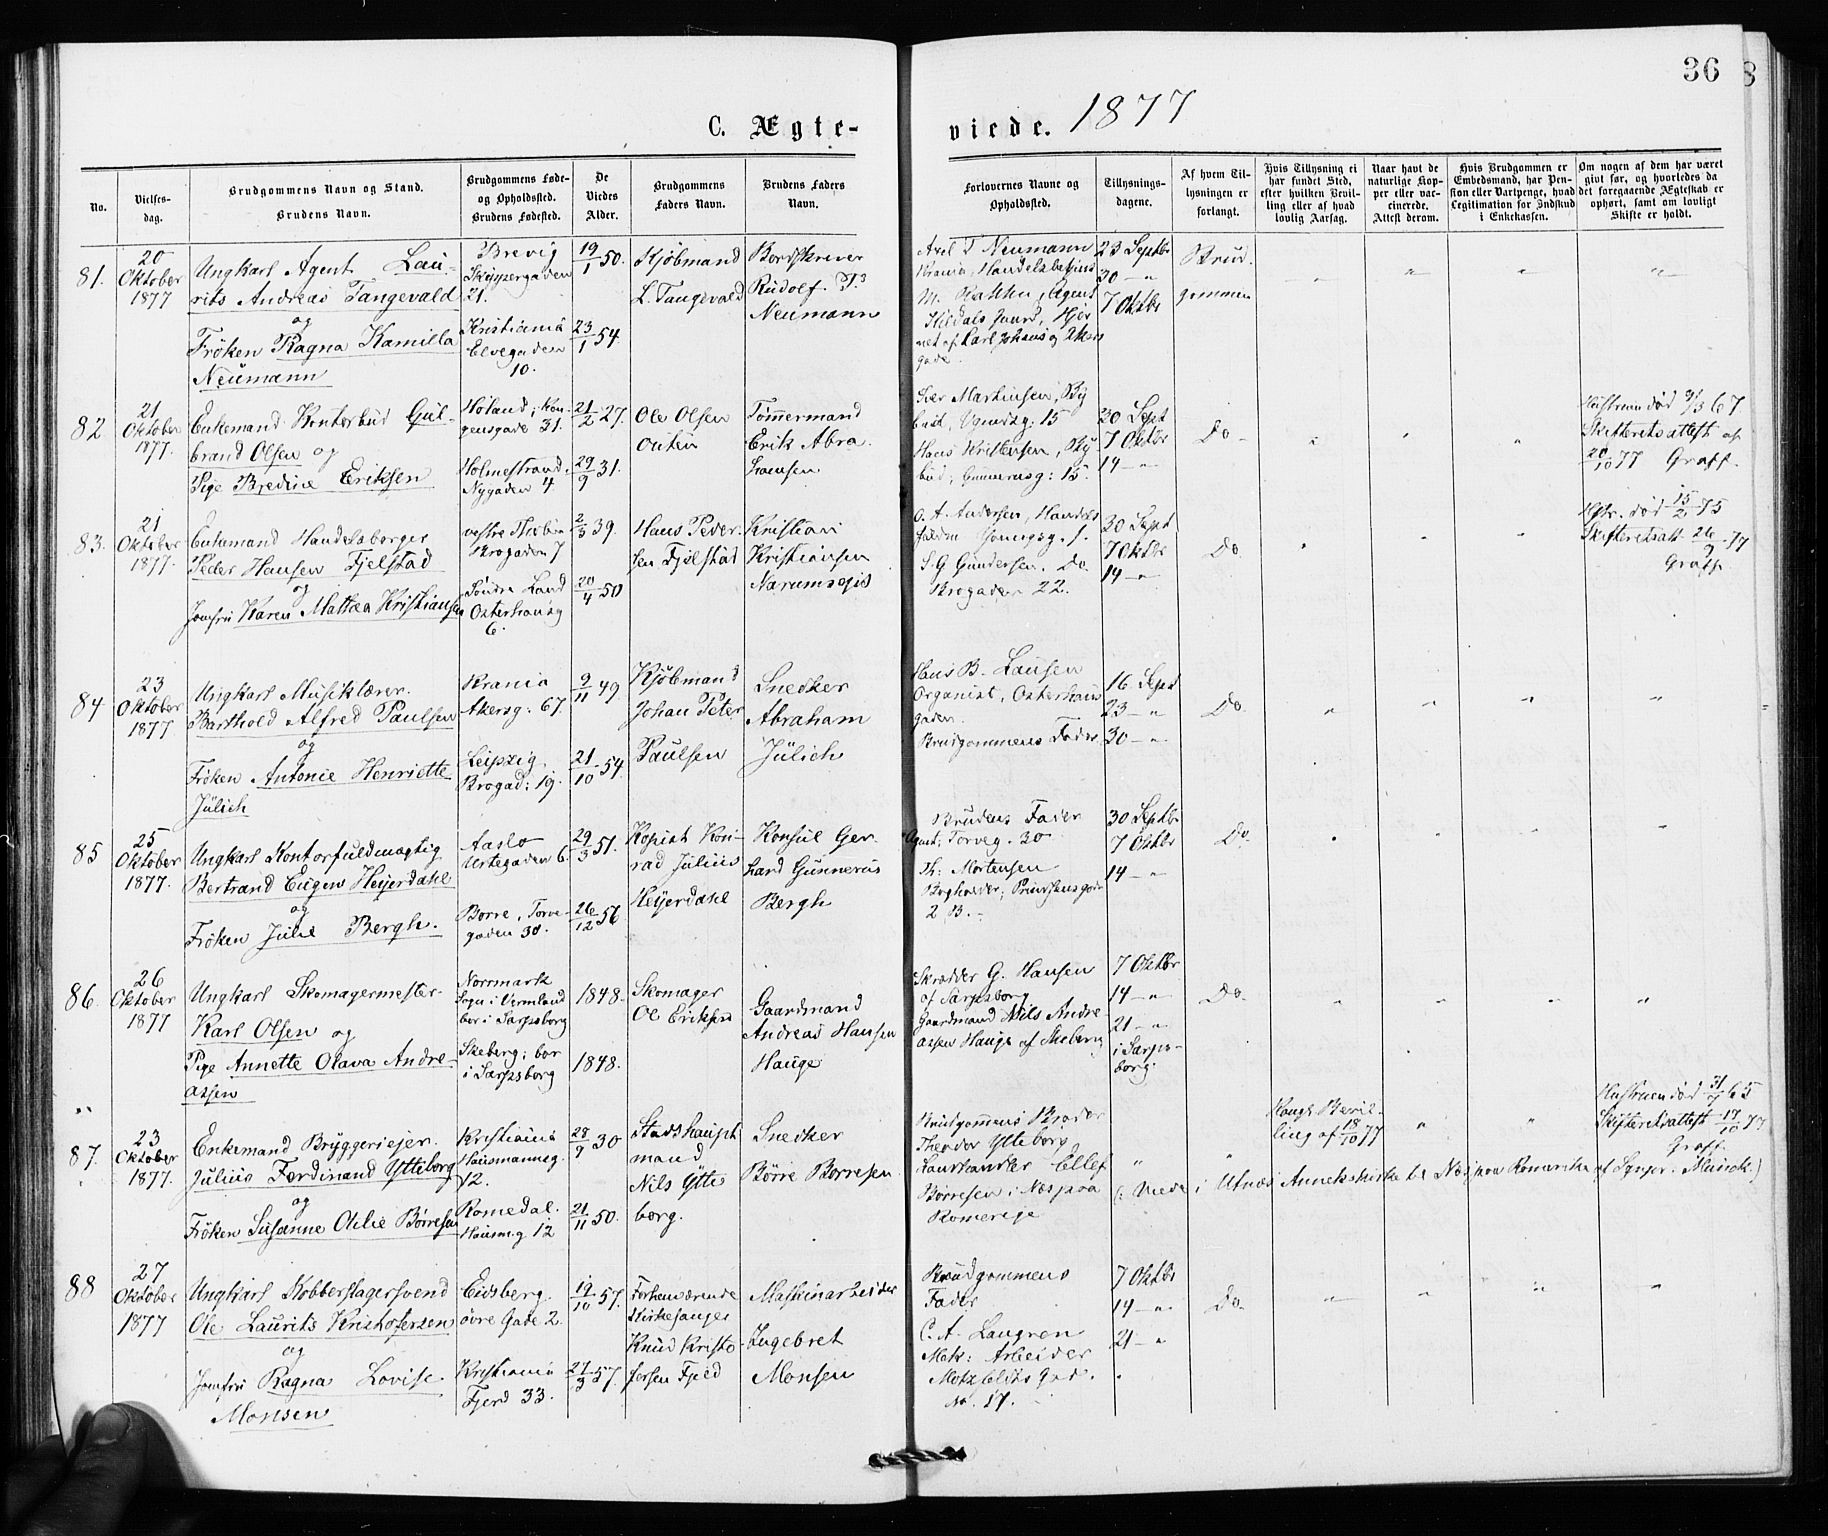 36
8
C. Ægte-
viede. 1877
No.
Vielses-
dag.
Brudgommens Navn og Stand.
Brudens Navn.
Brudgommens Føde-
og Opholdssted.
Brudens Fødested.
De
Viedes
Alder.
Brudgommens
Faders Navn.
Brudens Faders
Navn.
Forlovernes Navne og
Opholdssted.
Tillysnings-
dagene.
Af hvem Til-
lysningen er
forlangt.
Hvis Tillysning ei
har fundet Sted,
efter hvilken Bevil-
ling eller af hvad
lovlig Aarsag.
Naar havt de
naturlige Kop-
per eller vac-
cinerede.
Attest derom.
Hvis Brudgommen er
Embedsmand, har Pen-
sion eller Vartpenge, hvad
Legitimation for Indskud
i Enkekassen.
Om nogen af dem har været
givt før, og hvorledes da
det foregaaende Ægteskab er
ophørt, samt om lovligt
Skifte er holdt.
81.
20
Oktober
1877
Ungkarl Agent Lau-
rits Andreas Tangevald
og
Frøken Ragna Kamilla
Neumann
Brevig
Skippergaden
21.
Kristiania
Elvegaden
10.
19/1 50.
23/1 54.
Kjøbmand
L. Tangevald
Bordskriver
Rudolf
Neumann
Axel T Neumann
Krania, Handelsbetjent
M. , Agent
af Karl Johans og
gade
23 Septbr
30 - "
7 Oktbr
Brud
gommen
" " " "
82
21
Oktober
1877.
Enkemand Kontorbud Gul-
brand Olsen og
Pige Bredine Eriksen
Høland; Kon-
gensgade 31.
Holmestrand,
Nygaden 4
21/2 27.
29/9 31.
Ole Olsen
Outen
Tømmermand
Erik Abra
hamsen
Iver Martinsen, By
bud, 15
Hans Kristensen, By
bud, Gunnerusg: 15.
30 Sept
7 Oktbr
14 - "
Do
" " "
Hustruen død 9/3 67.
Skifteretsattest af
20/10 77 Graff.
83.
21
Oktober
1877.
Enkemand Handelsborger
Peder Hansen Fjelstad
og
Jomfru Karen Mathea Kristiansen
vestre Thoten
Brogaden 7
Søndre Land
Osterhausg
6.
2/3 39.
20/4 50
Hans Peder-
sen Fjelstad
Kristian
Kristiansen
Narumsegis
O. A. Andersen, Handels
Youngsg. 1.
S. G. Gundersen. Do
Brogaden 22.
30 Sept
7 Oktbr
14 - "
Do
" " "
Hstr. død 15/2 75
Skifteretsatt. 26/9 77
Graff
84
23
Oktober
1877
Ungkarl Musiklærer
Barthold Alfred Paulsen
og
Frøken Antonie Henriette
Jülich
Krania
Akersg. 67.
Leipzig,
Brogad: 19.
9/11 49.
21/10 54.
Kjøbmand
Johan Peter
Paulsen
Snedker
Abraham
Jülich
Hans B. Lausen
Organist, Osterhaus
gaden
Brudgommens Fader
16 Sept
23 - "
30 - "
Do
" " " "
85
25
Oktober
1877.
Ungkarl Kontorfuldmægtig
Bertrand Eugen Heyerdahl
og
Frøken Julie Bergh.
Aaslo
Urtegaden 6.
Borre, Torve-
gaden 30.
29/3 51.
26/12 56
Kopist Kon-
rad Julius
Heyerdahl
Konsul Ger-
hard Gunnerus
Bergh
Brudens Fader
Agent, Torveg. 30
Th: Mortensen
Bogholder; Prindsensgade
2 B. -
30 Septbr
7 Oktbr
14 - "
Do.
" " " "
86
26
Oktober
1877
Ungkarl Skomagermester
Karl Olsen og
Pige Annette Olava Andre-
assen
Normark
Sogn i Vermland
bor i Sarpsborg
Skeberg; bor
i Sarpsborg
1848.
1848.
Skomager
Ole Eriksen
Gaardmand
Andreas Hansen
Hauge
Skrædder G. Hansen
af Sarpsborg
Gaardmand Nils Andre-
assen Hauge af Skeberg
7 Oktbr
14 - "
21 - "
i Sarps-
borg.
Do.
" " " "
"
87.
23
Oktober
1877.
Enkemand Bryggerieier
Julius Ferdinand Ytteborg
og
Frøken Susanne Otilie Børresen
Kristiania
Hausmannsg.
12.
Romedal.
Hausm.g. 12
28/9 30
21/11 50.
Stadshaupt
mand
Nils Ytte-
borg.
Snedker
Børre Børresen
Brudgommens Broder
Theodor Ytteborg
Landhandler Ellef
Børresen i Næs paa
Romerige
"
"
Kongl. Bevil-
ling af 18/10 77
" "
Hustruen død 31/ 65
Skifteretsattest 17/10 77
Graff
(: Viede i Utnæs Annekskirke til Næs paa Romerike af Sgnpr. Munch.)
88
27
Oktober
1877
Ungkarl Kobberslagersvend
Ole Laurits Kristofersen
og
Jomfru Ragna Lovise
Monsen
Eidsberg.
øvre Gade 2.
Kristiania
Fjerd 33.
19/10 57.
27/3 57.
Forhenværende
Kirkesanger
Knud Kristo-
fersen Fjeld
Maskinarbeider
Ingebret
Monsen
Brudgommens
Fader
C. A. Laugren
Mek: Arbeider
Motzfeldts Gade
No. 17.
7 Oktbr
14 - "
21 - "
Do.
" " " "